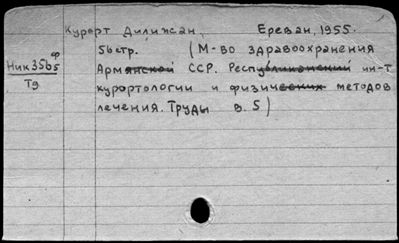 Курорт Дилижан, Ереван, 1955.
56 стр. (М-во здравоохранения
Армянской ССР. Республиканский ин-т
курортологии и физических методов
лечения. Труды в. 5)
ф
Ник 3565
Т9